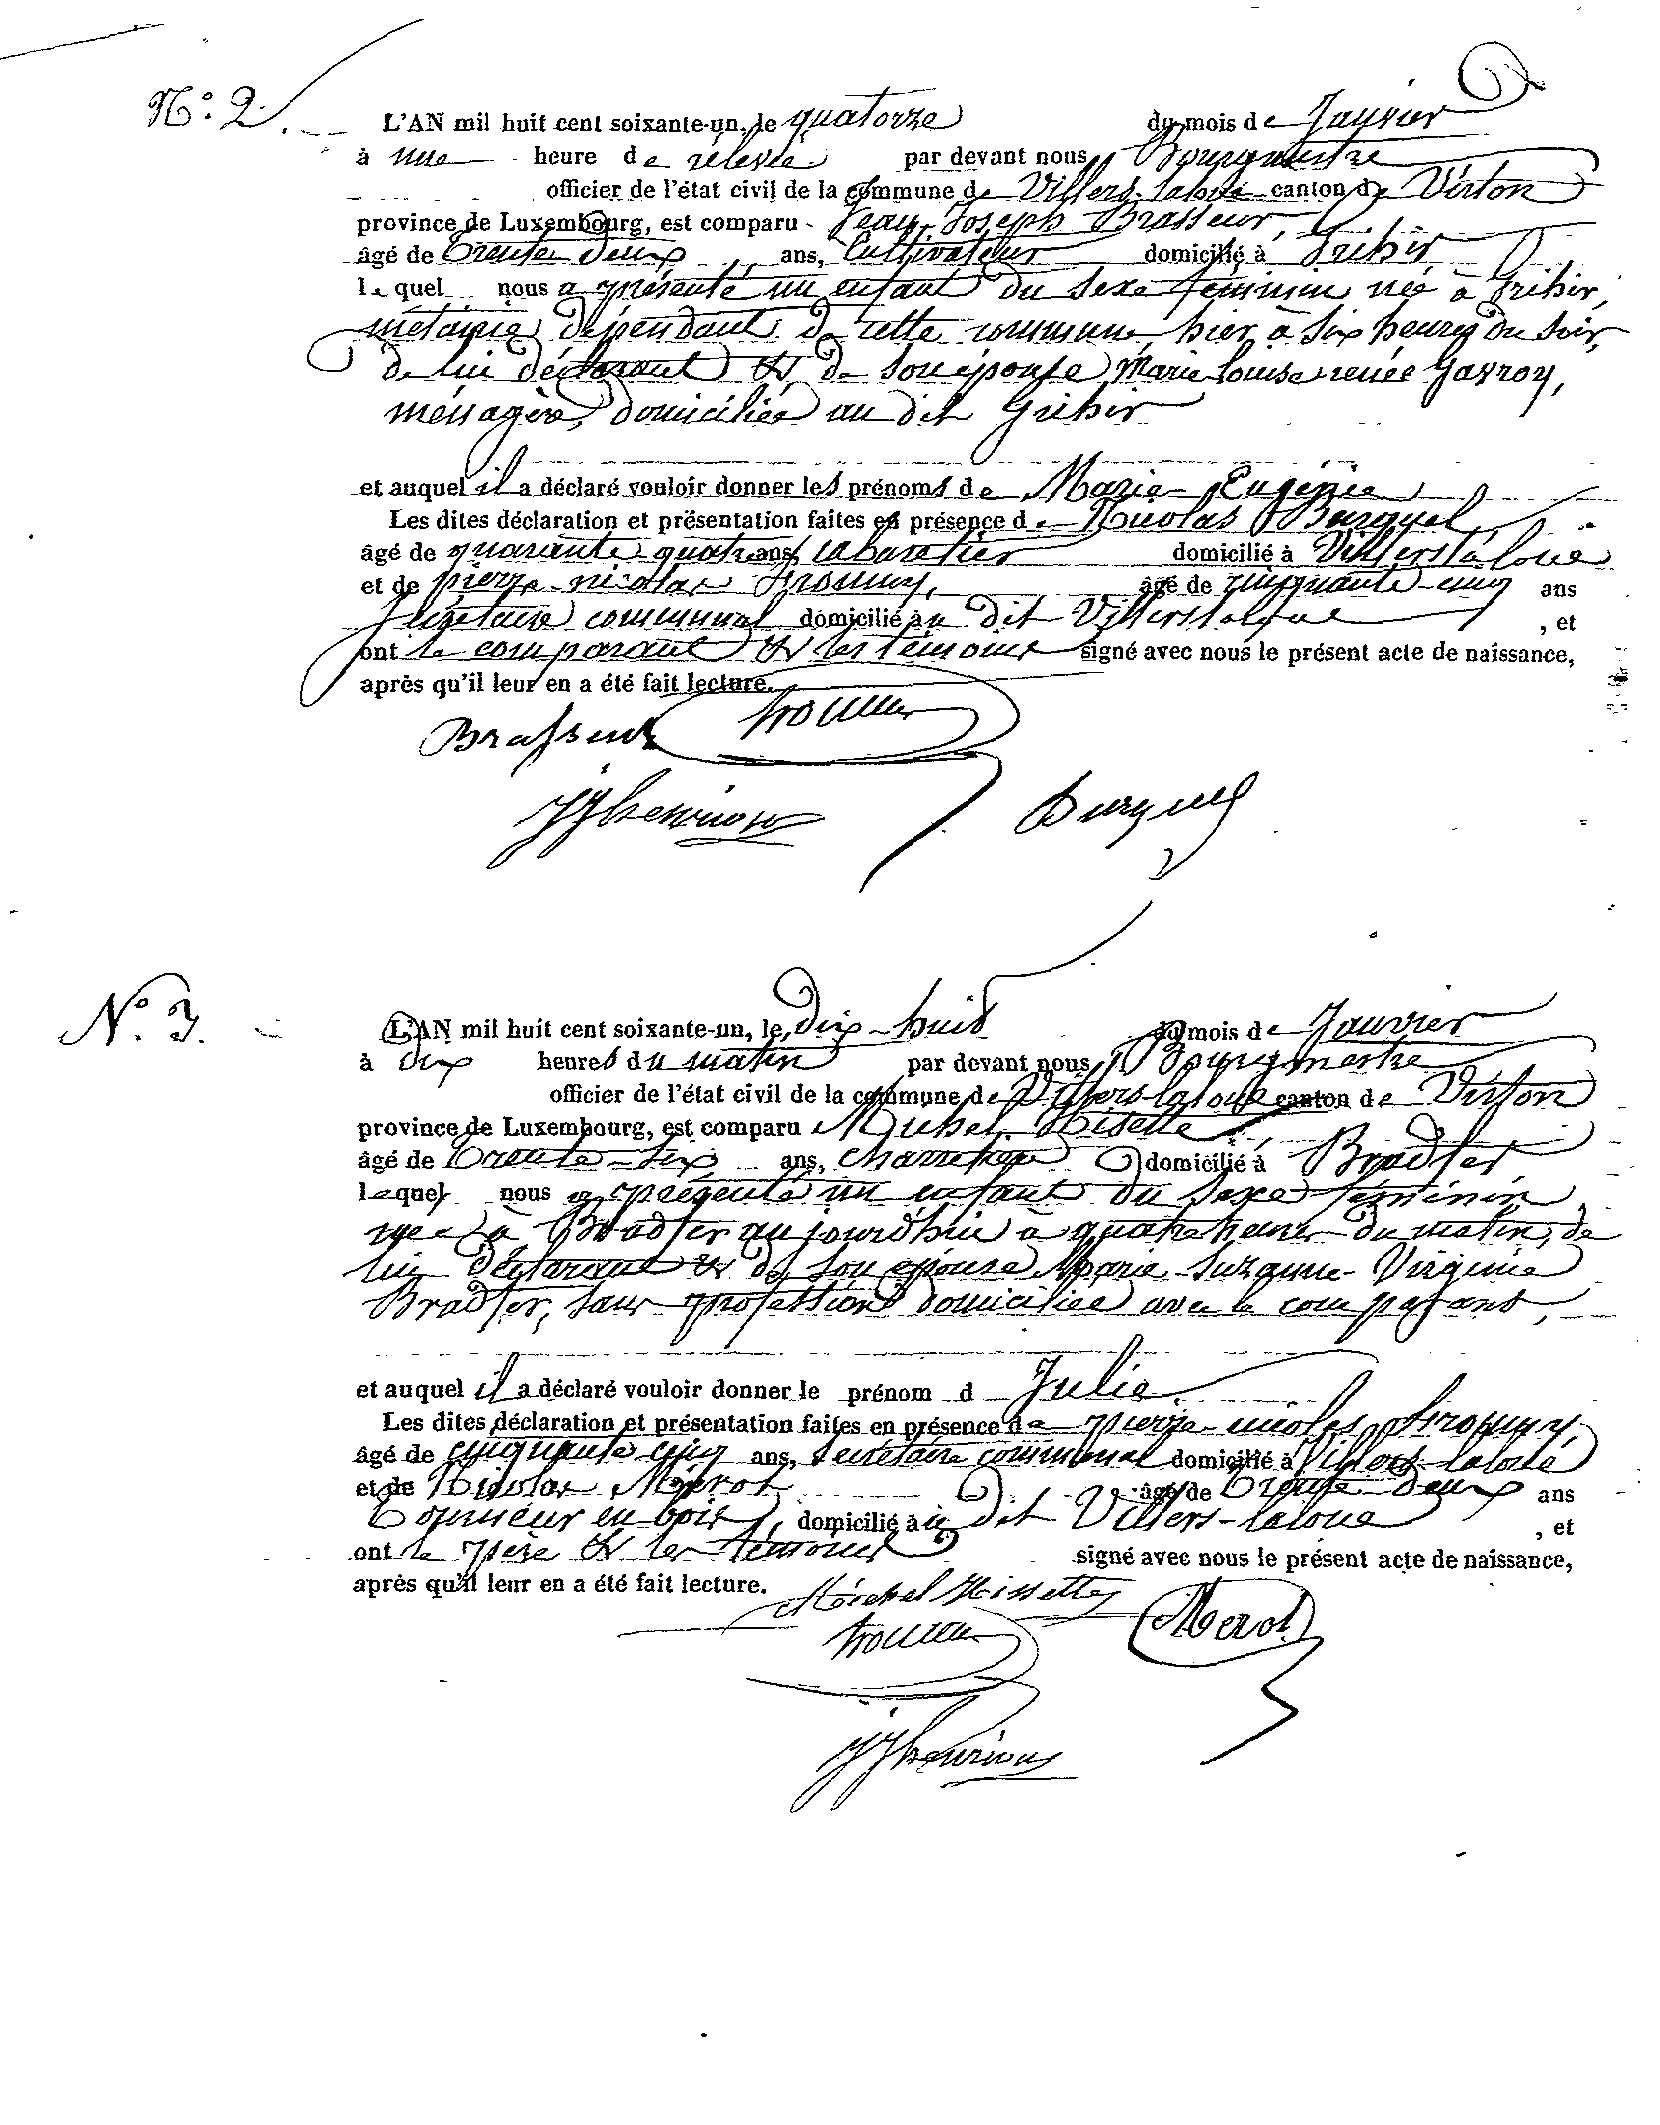 N.° 2.
L'AN mil huit cent soixante-un, le quatorze du mois de Janvier
à une heure de relevée par devant nous Bourgmestre
officier de l'état civil de la commune de Villers-laloue canton de Virton
province de Luxembourg, est comparu Jean-Joseph Brasseur,
âgé de trente deux ans, Cultivateur domicilié à
le quel nous a présenté un enfant du sexe féminin née à
métairie dépendant de cette commune, hier à six heures du soir,
de lui déclarant & de son épouse Marie Louise renée
ménagère, domiciliée au dit
et auquel il a déclaré vouloir donner les prénoms de Marie-Eugénie
Les dites déclaration et présentation faites en présence de Nicolas Burquel,
âgé de quarante quatre ans, cabaretier domicilié à Villers-laloue
et de pierre-nicolas âgé de cinquante-cinq ans
Secrétaire communal domicilié au dit Villers-laloue , et
ont le comparant & les témoins signé avec nous le présent acte de naissance,
après qu'il leur en a été fait lecture.
Brasseur
JJhenrion Burquel
N.° 3.
L'AN mil huit cent soixante-un, le dix-huit du mois de Janvier
à dix heures du matin par devant nous Bourgmestre
officier de l'état civil de la commune de Villers-laloue canton de Virton
province de Luxembourg, est comparu Michel Hisette,
âgé de trente-six ans, domicilié à Bradfer
lequel nous a présenté un enfant du sexe féminin
née à Bradfer aujourd'hui à quatre heures du matin, de
lui déclarant & de son épouse Marie-Suzanne-Virginie
Bradfer, sans profession domiciliée avec le comparant,
et auquel il a déclaré vouloir donner le prénom d Julie.
Les dites déclaration et présentation faites en présence de pierre-nicolas
âgé de cinquante-cinq ans, Secrétaire communal domicilié à Villers-laloue
et de Nicolas Mérot âgé de trente-deux ans
Tourneur en bois, domicilié au dit Villers-laloue , et
ont le père & les témoins signé avec nous le présent acte de naissance,
après qu'il leur en a été fait lecture.
Michel Hissette
Merot
JJhenrion